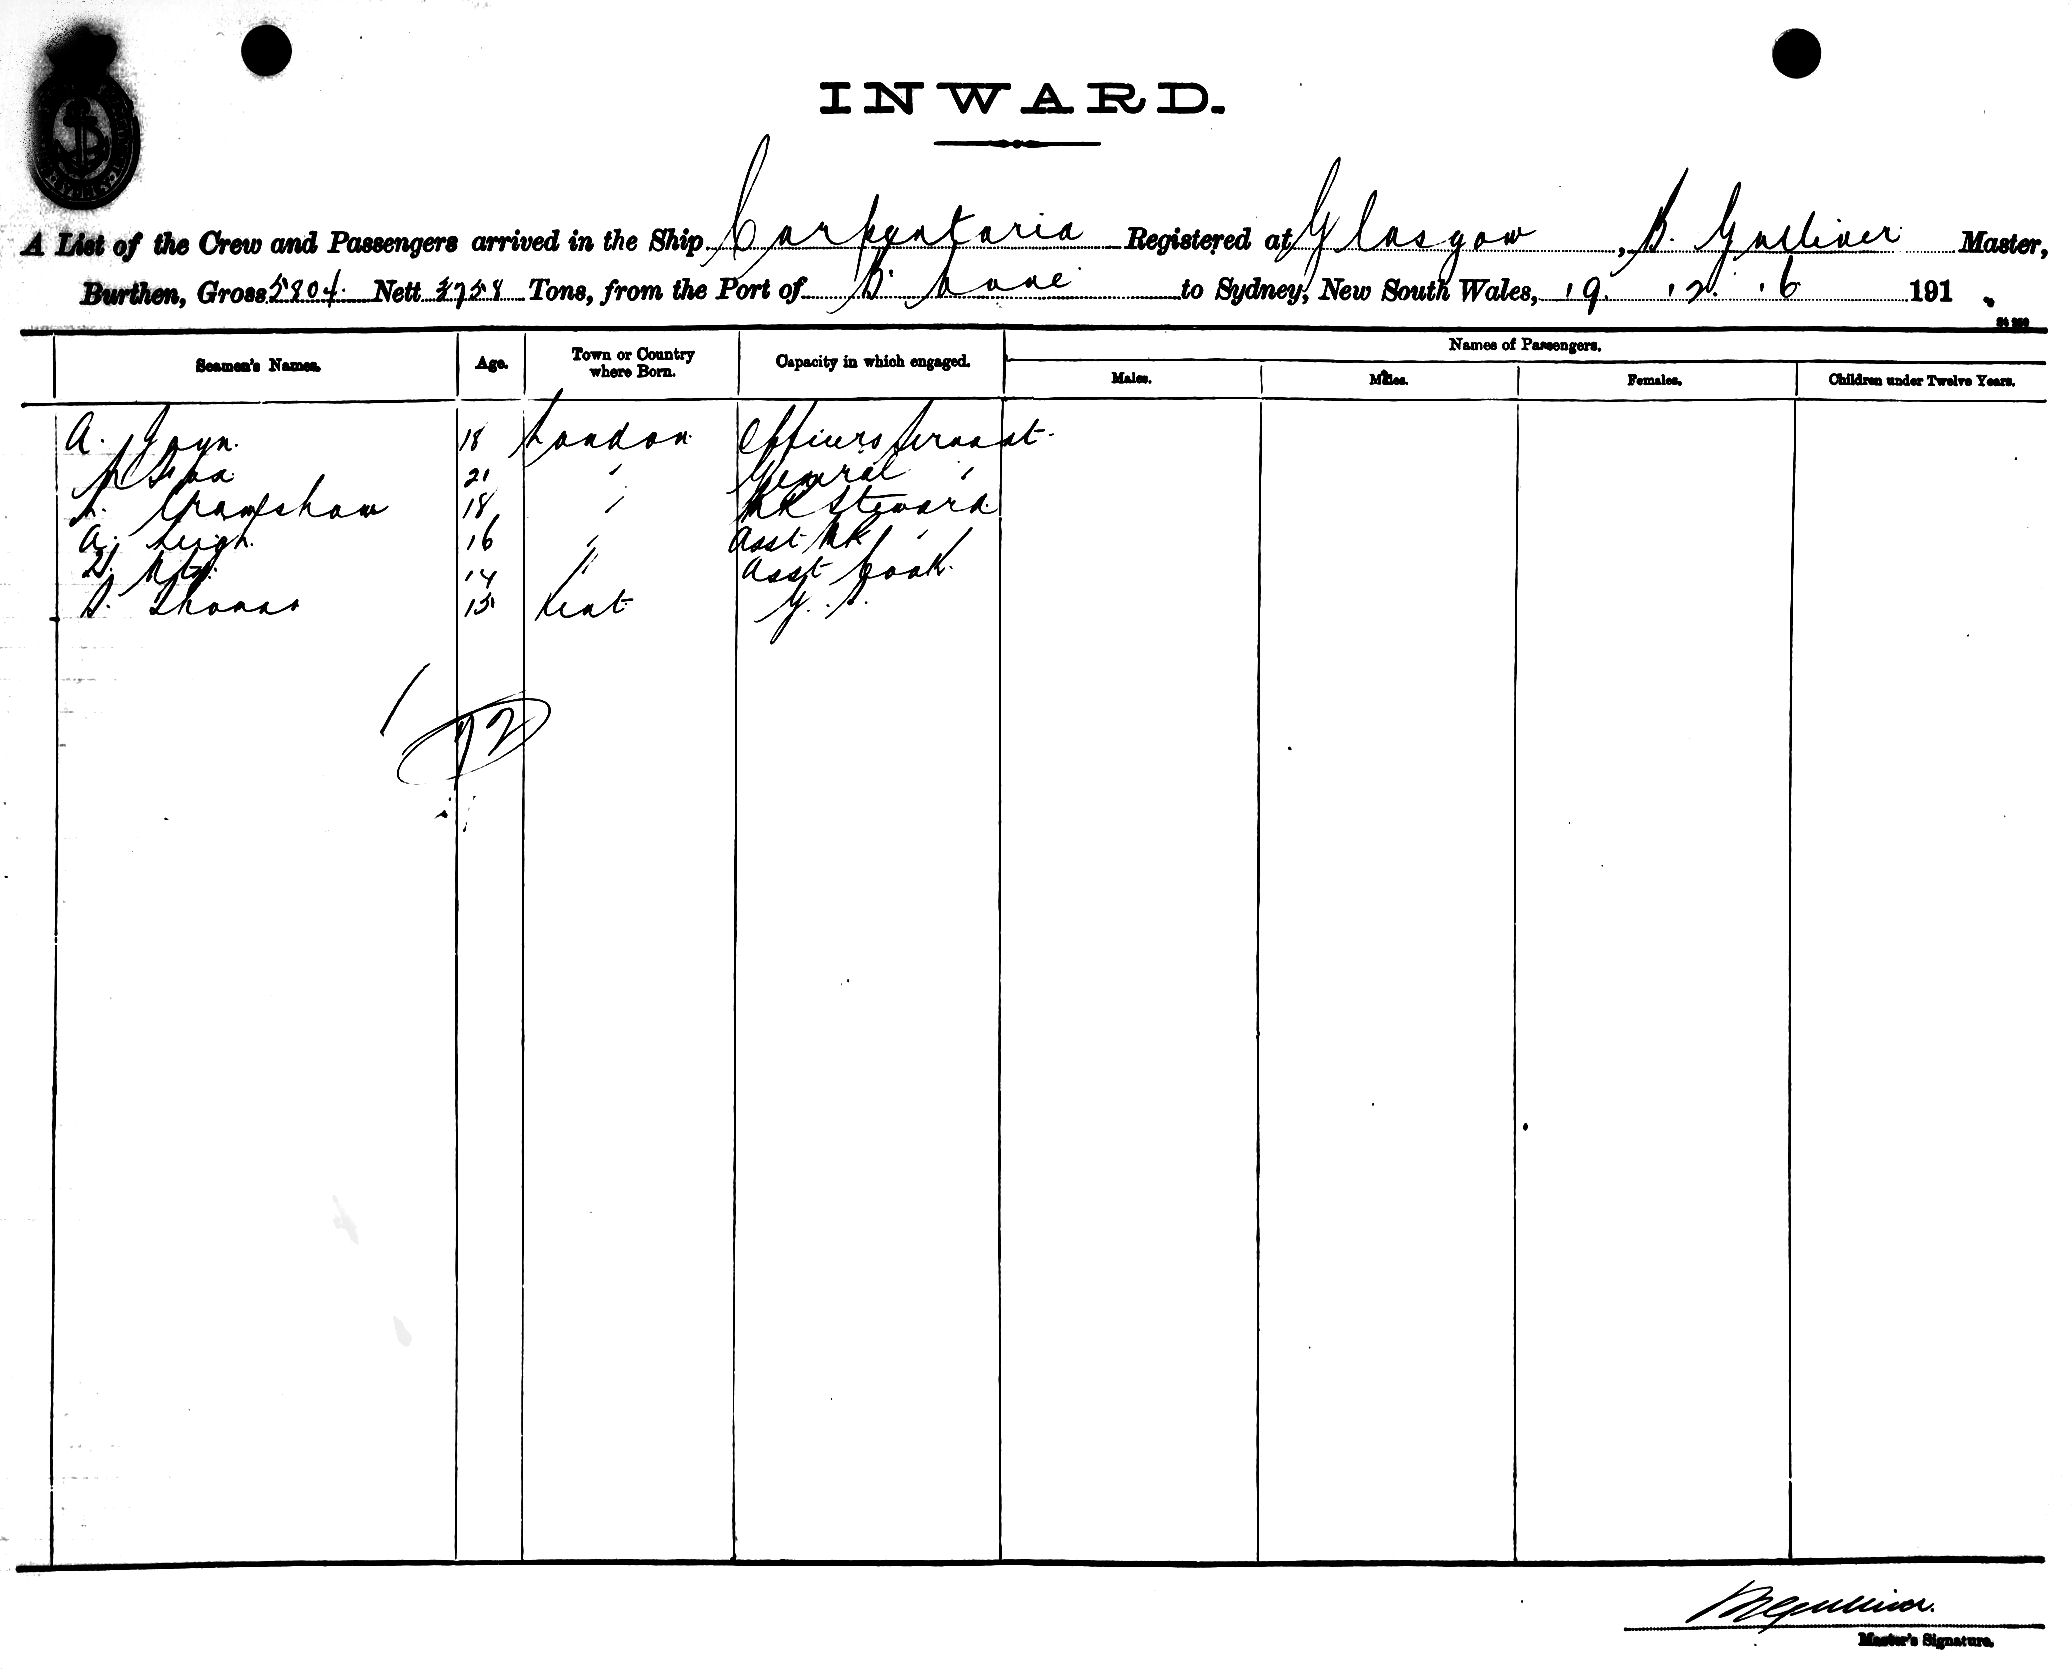 INWARD.
A List of the Crew and Passengers arrived in the Ship Carpentaria Registered at Glasgow, B. Gulliver Master,
Burthen, Gross 5804. Nett Tons, from the Port of B'bane to Sydney, New South Wales, 19. 12. 16 191
Seamen's Names. Age. Town or Country where Born. Capacity in which engaged. Names of Passengers.
Males. Males. Females. Children under Twelve Years.
A. 18 London Officers Servant.
21 " General "
Crawshaw 18 " Steward
A. Leigh. 16 " Asst "
14 " Asst Cook.
Thomas 15 Kent
72
Master's Signature.